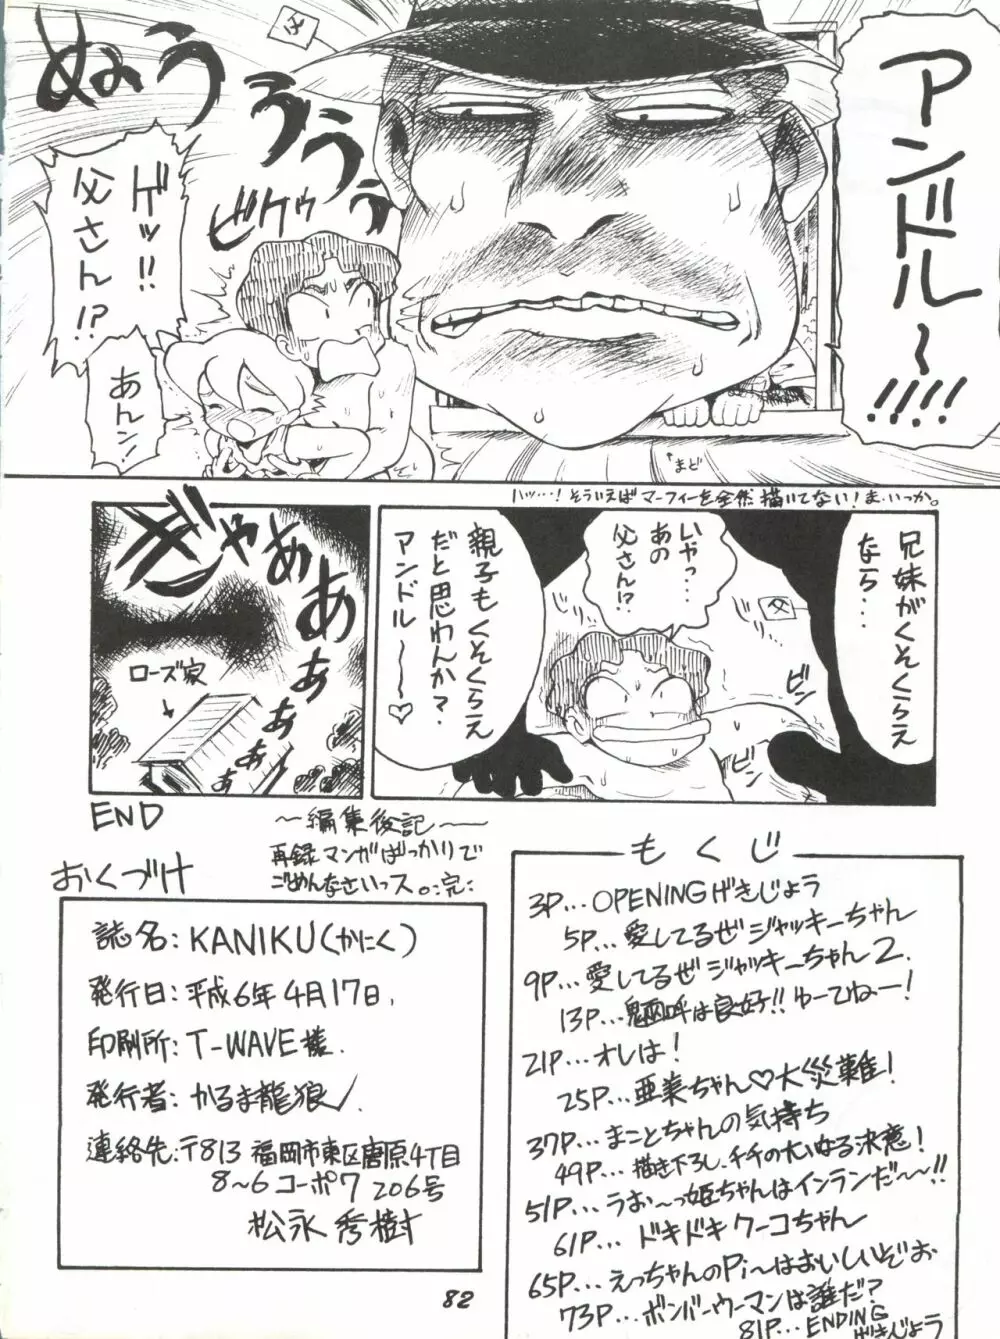 アンドル～!!!!
父
ぬぉうううう
ビクゥ
ゲッ!!
父さん!?
あんッ!
↑まど
ハッ…!そういえばマーフィーを全然描いてない!ま、いっか。
兄妹がくそくらえ
なら…
父
いやっ…
あの
父さん!?
親子もくそくらえ
だと思わんか?
アンドル～～♡
ビン
ビン
ぎゃああああああああ
ローズ家
END
～編集後記～
再録マンガばっかりで
ごめんなさいっス。:完:
おくづけ
誌名:KANIKU(かにく)
発行日:平成6年4月17日.
印刷所:T-WAVE様.
発行者:かるま龍狼
連絡先:〒813 福岡市東区唐原4丁目
8～6コーポワ206号
松永秀樹
もくじ
3P…OPENINGげきじょう
5P…愛してるぜジャッキーちゃん
9P…愛してるぜジャッキーちゃん2.
13P…魍呼は良好!!ゆーてねー!
21P…オレは!
25P…亜美ちゃん♡大災難!
37P…まことちゃんの気持ち
49P…描き下ろし、チチの大いなる決意!
51P…うお～っ姫ちゃんはインランだ～～!!
61P…ドキドキクーコちゃん
65P…えっちゃんのPi～はおいしいぞぉ
73P…ボンバーウーマンは誰だ?
81P…ENDING
げきじょう
82